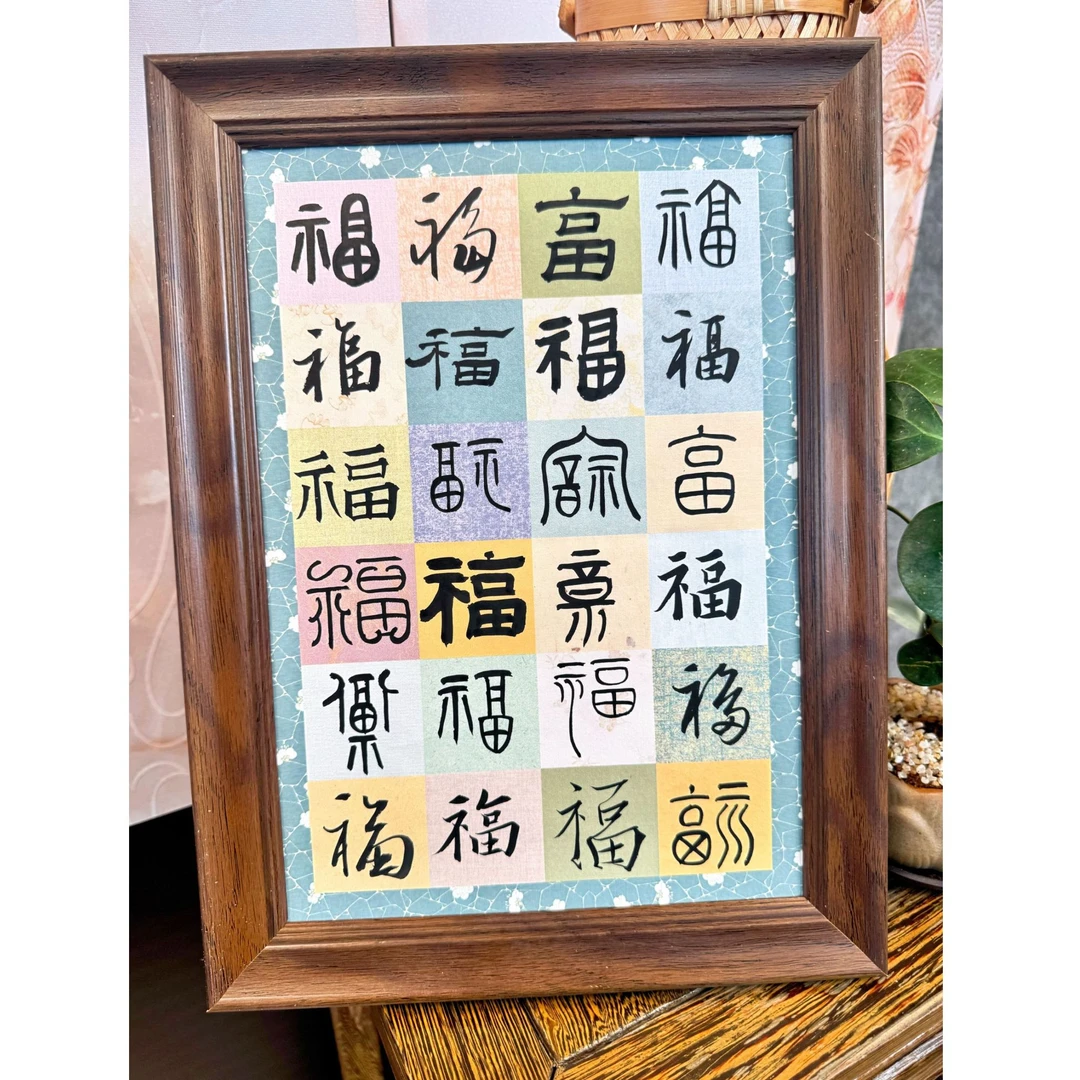 福 福 畐 福
福 福 福 福
福 福 福 畐
福 福 福 福
福 福 福 福
福 福 福 福